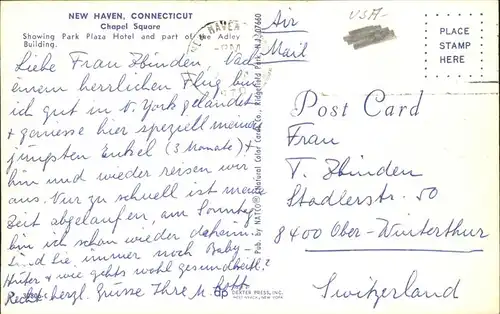 NEW HAVEN, CONNECTICUT
Chapel Square
Showing Park Plaza Hotel and part of the Adley
Building.
Liebe Frau Zbinden, Nach
einem herrlichen Flug bin
ich gut in N. York gelandet
+ geniesse hier speziell meinen
jüngsten Enkel (3 Monate) +
hin und wieder reisen wir
aus. Nur zu schnell ist meine
Zeit abgelaufen, am Sonntag
bin ich schon wieder daheim.
Sind Sie immer noch Baby-
Hüter + wie gehts wohl gesundheitl.?
Recht herzl. Grüsse Ihre M.
DEXTER PRESS, INC.
WEST NYACK, NEW YORK
NEW HAVEN
Pub. by NATCO Natural Color Card Co., Ridgefield Park, N.J. 07660
Air
Mail
USA
PLACE
STAMP
HERE
Post Card
Frau
T. Zbinden
Stadlerstr. 50
8400 Ober-Winterthur
Switzerland